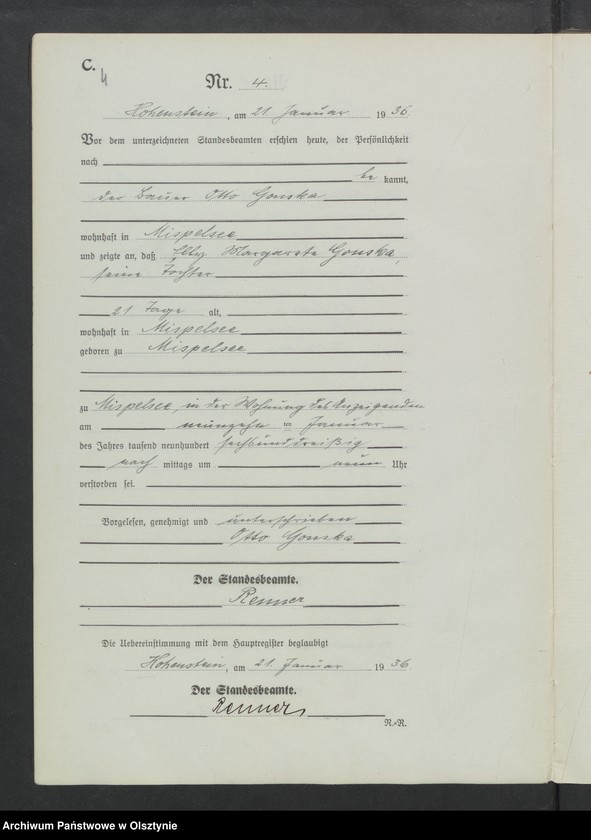 C.
4
Nr. 4.
Hohenstein, am 21. Januar 1936
Vor dem unterzeichneten Standesbeamten erschien heute, der Persönlichkeit
nach
be kannt,
der Bauer Otto Gonska
wohnhaft in Mispelsee
und zeigte an, daß Margarete Gonska,
seine Tochter
21 Tage alt,
wohnhaft in Mispelsee
geboren zu Mispelsee
zu Mispelsee, in der Wohnung des Anzeigenden
am neunzehn ten Januar
des Jahres tausend neunhundert sechsunddreißig
nach mittags um neun Uhr
verstorben sei.
Vorgelesen, genehmigt und unterschrieben
Otto Gonska
Der Standesbeamte.
Renner
Die Uebereinstimmung mit dem Hauptregister beglaubigt
Hohenstein, am 21. Januar 1936
Der Standesbeamte.
Renner
R.-R.
Archiwum Państwowe w Olsztynie